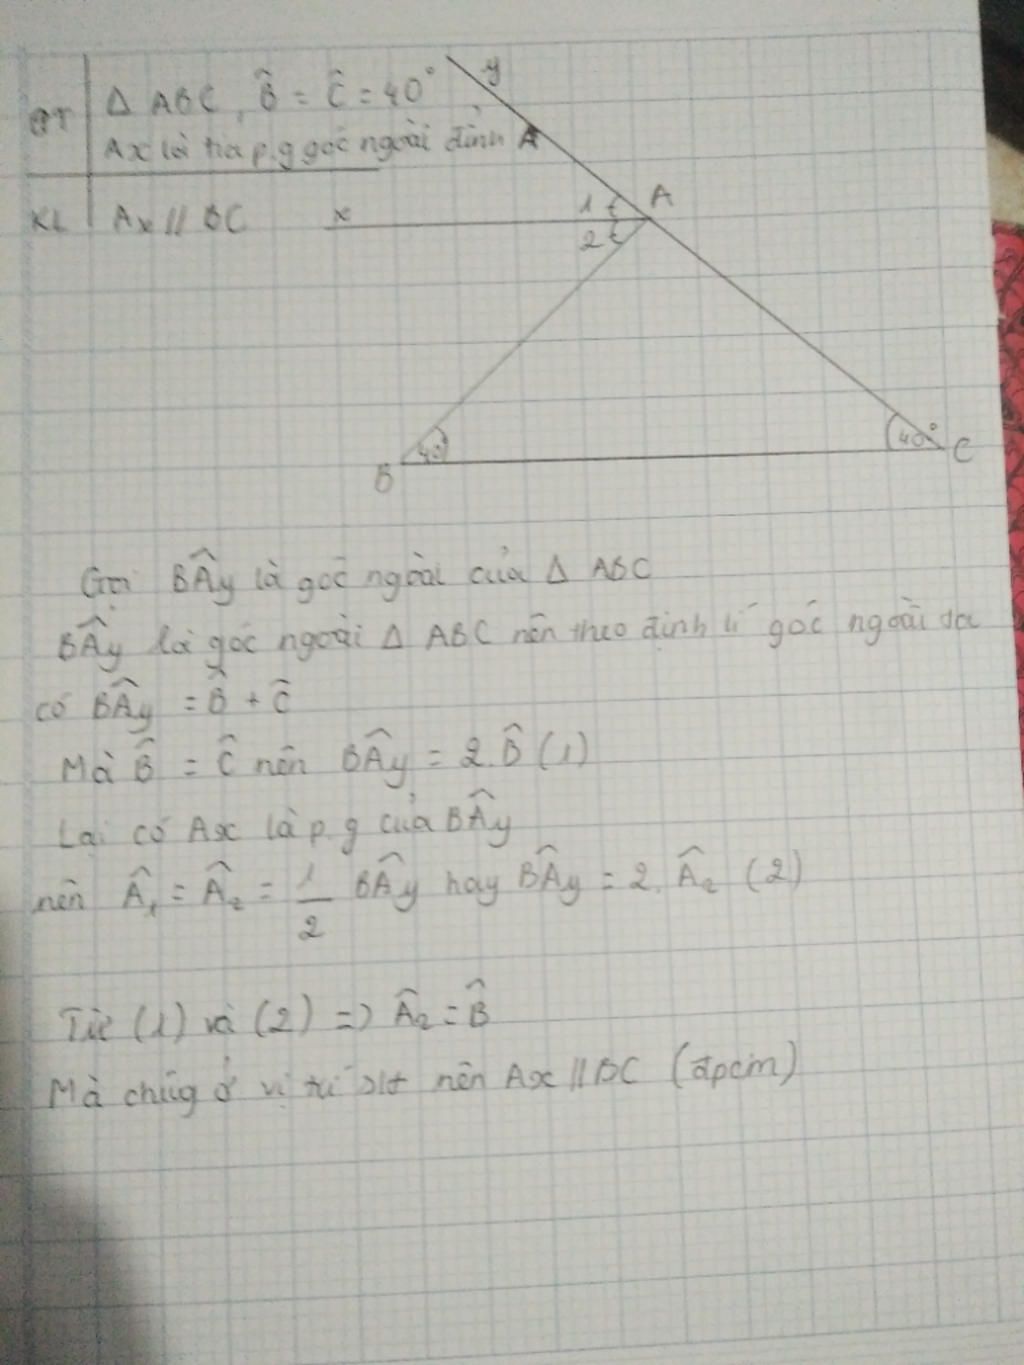 GT
Δ ABC, B̂ = Ĉ = 40°
Ax là tia p.g góc ngoài đỉnh A
KL
Ax // BC
y
x
1
2
A
B
40°
40°
C
Gọi BÂy là góc ngoài của Δ ABC
BÂy là góc ngoài Δ ABC nên theo định lí góc ngoài ta
có BÂy = B̂ + Ĉ
Mà B̂ = Ĉ nên BÂy = 2.B̂ (1)
Lại có Ax là p.g của BÂy
nên Â₁ = Â₂ = 1/2 BÂy hay BÂy = 2.Â₂ (2)
Từ (1) và (2) => Â₂ = B̂
Mà chúg ở vị trí slt nên Ax // BC (đpcm)